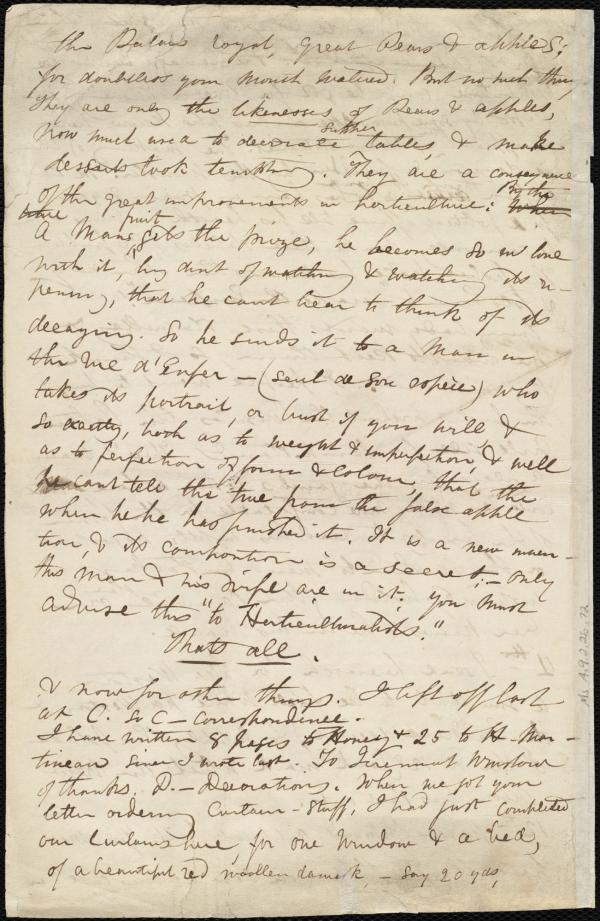 the Palais royal, great Pears & apples;
for doubtless your mouth watered. But no such thing
They are only the likenesses of Pears & apples,
now much used to decorate supper tables, & make
desserts look tempting. They are a consequence
of the great improvements in horticulture: By the
time When
A Man's fruit gets the prize, he becomes so in love
with it, by dint of watching & watching its ri-
pening, that he can't bear to think of its
decaying. So he sends it to a Man in
the Rue d'Enfer — (seul de son espèce) who
takes its portrait, or bust if you will, &
so exactly, both as to weight & imperfection, & well
as to perfection of form & colour, that the
he can't tell the true from the false apple
when he he has finished it. It is a new inven-
tion, & its composition is a secret; — only
this man & his wife are in it; you must
advise the "to Horticulturalists."
Thats all.
& now for other things. I left off last
at C. so C — Correspondence.
I have written 8 pages to Honey & 25 to H. Mar-
tineau since I wrote last. To Jeremiah Winslow
of thanks. D. — Decorations. When we got your
letter ordering Curtain-Stuff, I had just completed
our Curtains here, for one Window & a bed,
of a beautiful red woollen damask, — say 20 yds,
Ms. A.9.2.26.72